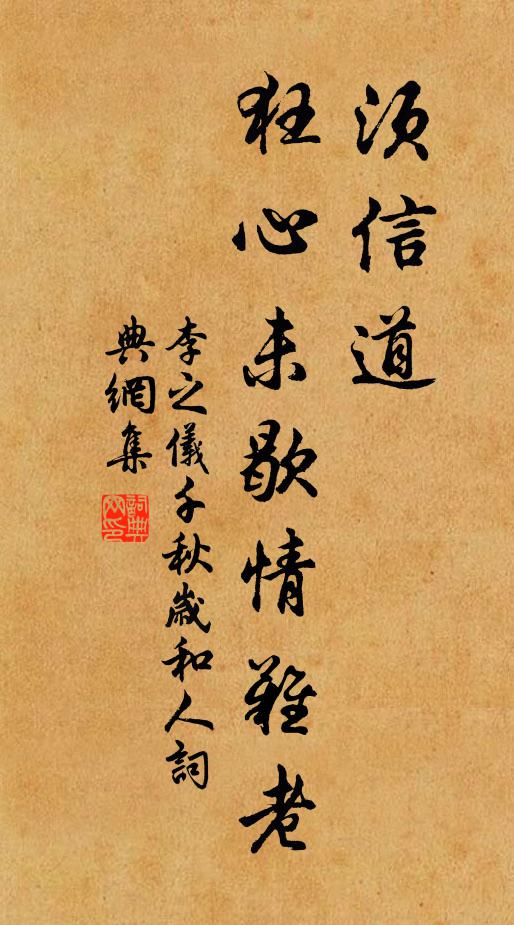 須信道
狂心未歇情難老
李之儀千秋歲和人詞
典網集
詞典
网印